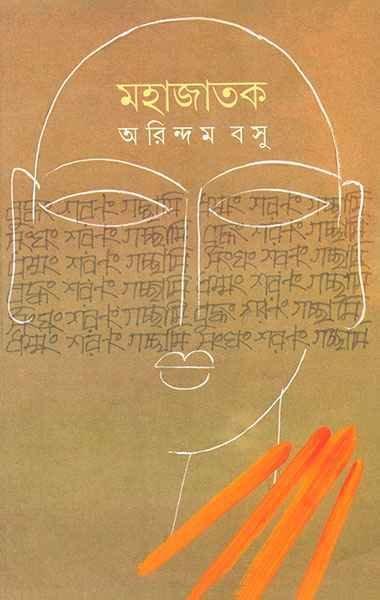 মহাজাতক
অরিন্দম বসু
বুদ্ধং শরনং গচ্ছামি ধম্মং শরনং গচ্ছামি
সংঘং শরনং গচ্ছামি বুদ্ধং শরনং গচ্ছামি
ধম্মং শরনং গচ্ছামি সংঘং শরনং গচ্ছামি
বুদ্ধং শরনং গচ্ছামি ধম্মং শরনং গচ্ছামি
সংঘং শরনং গচ্ছামি বুদ্ধং শরনং গচ্ছামি
ধম্মং শরনং গচ্ছামি সংঘং শরনং গচ্ছামি